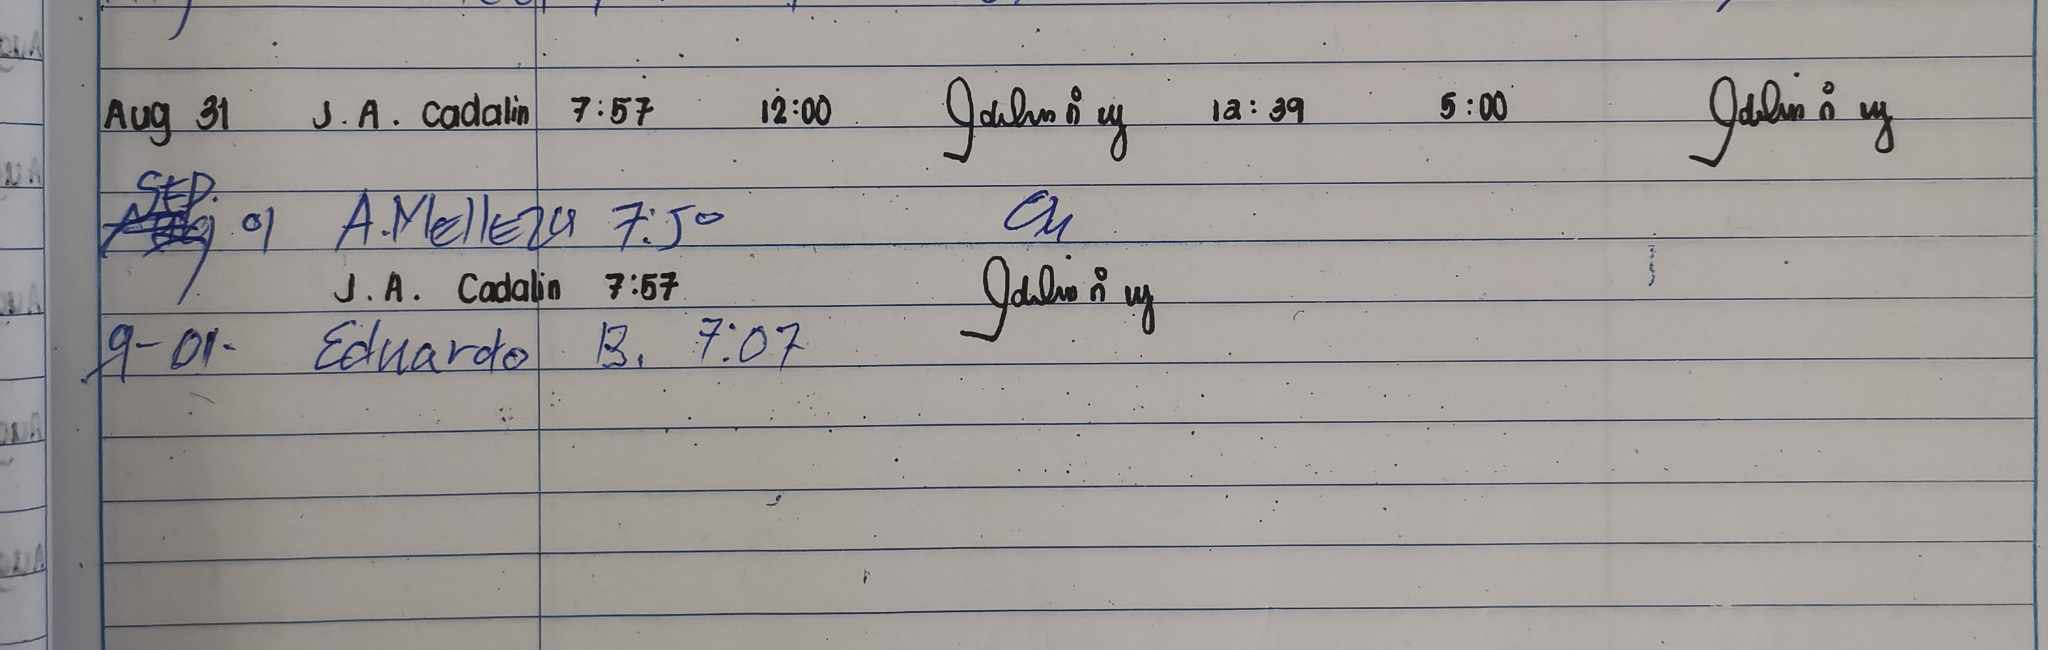 Aug 31 J. A. Cadalin 7:57 12:00 12:39 5:00
Sep. 01 A. Melleza 7:50
J. A. Cadalin 7:57
9-01- Eduardo B. 7:07